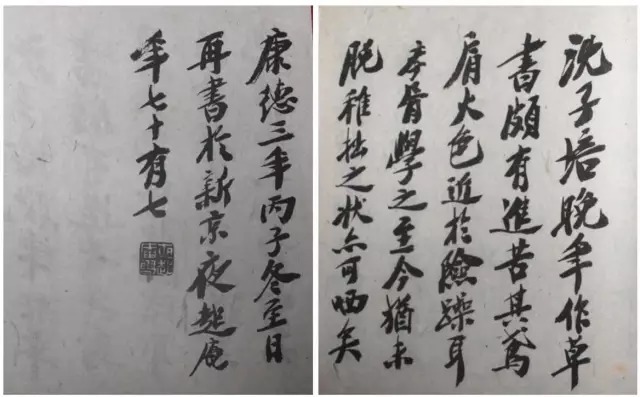 沈子培晚年作草
書頗有進苦其鳶
肩火色近於險躁耳
孝胥學之至今猶未
脫稚拙之狀亦可哂矣
康德三年丙子冬至日
再書於新京夜起庵
年七十有七